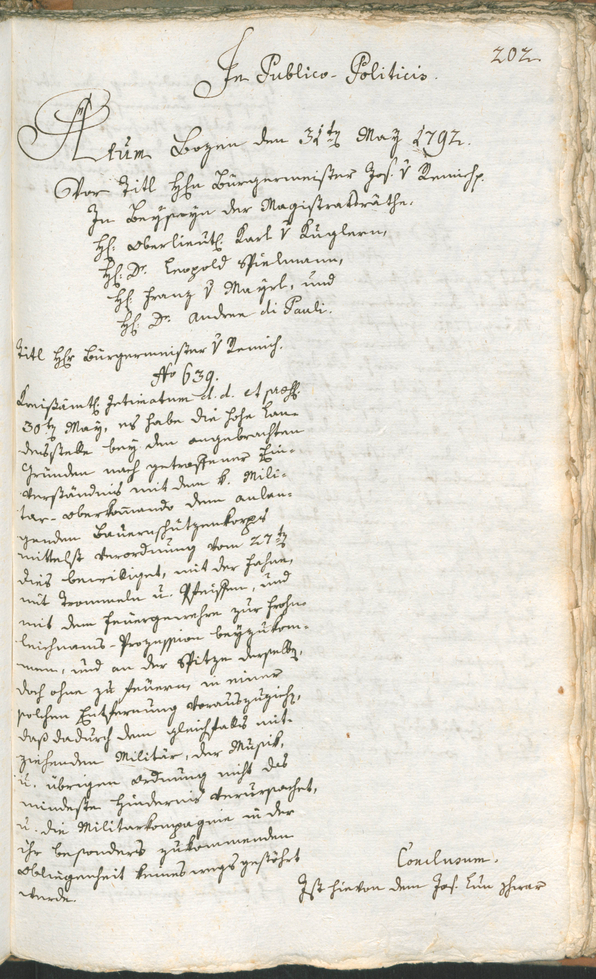 202.
In Publico-Politicis.
Actum Bozen den 31ty May 1792.
Vor Titl Hhn Bürgermeister Jos. v Remich
In Beyseyn der Magistratsräthe,
Hh: Oberlieut. Karl v Kuglern,
Hh: Dr. Leopold Spielmann,
Hh Franz v Mayrl, und
Hh: Dr. Andree di Pauli.
Titl Hhr Bürgermeister v Remich.
No 639.
Kreißämtl. Intimatum d. d. et
30ty May, es habe die hohe Lan-
desstelle bey den angebrachten
Gründen nach getroffener Ein-
verständnis mit dem k. Mili-
tar-Oberkommando dem anlan-
genden Bauernschützenkorps
mittelst Verordnung vom 27ty
dies bewilliget, mit der Fahne,
mit Trommeln u. Pfeiffen, und
mit dem Feuergewehre zur Frohn-
leichnams-Prozession beyzukom-
men, und an der Spitze derselb,
doch ohne zu feuern, in einer
solchen Entfernung vorauszuzieh,
daß dadurch dem gleichfalls mit-
ziehenden Militär, der Musik,
u. übrigen Ordnung nicht das
mindeste Hinderniß verursachet,
u. die Militarkompagnie in der
ihr besonders zukommenden
Obliegenheit keineswegs gestöhrt
werde.
Conclusum.
Ist hievon dem Jos. Lun